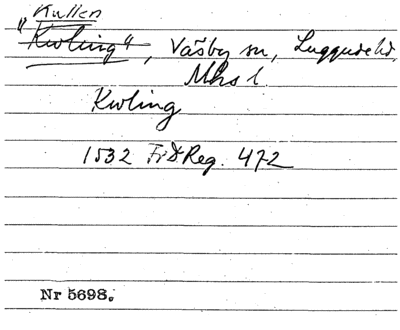 "Kullen
Kwling", Väsby sn, Luggude hd,
Mhs l.
Kwling
1532 FrdReg. 472
Nr 5698.